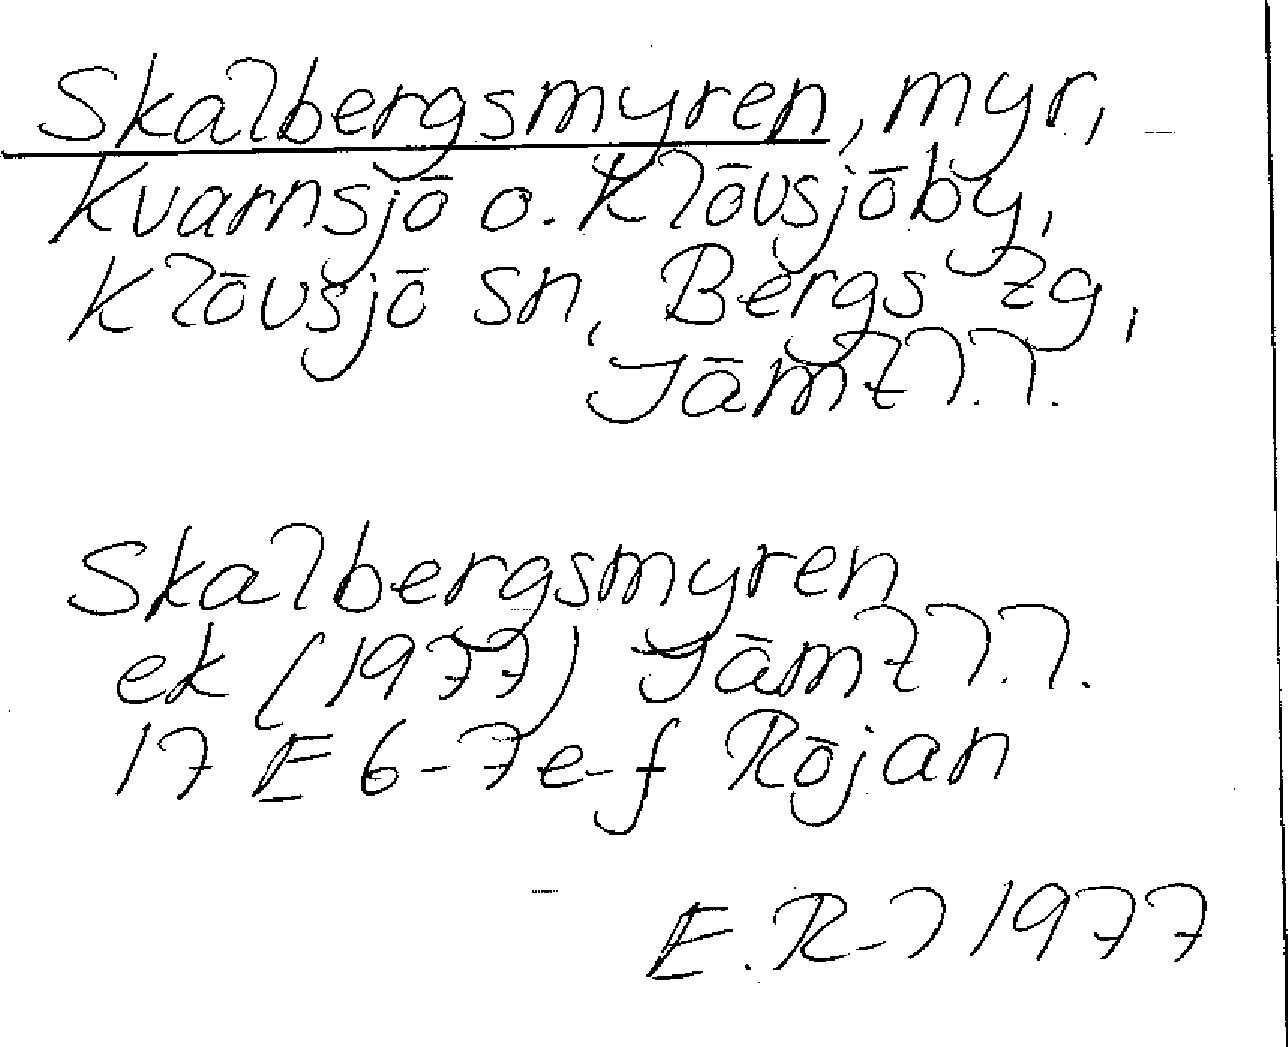 Skalbergsmyren, myr,
Kvarnsjö o. Klövsjöby,
Klövsjö sn, Bergs tg,
Jämtl.l.
Skalbergsmyren
ek (1977) Jämtl.l.
17 E 6-7e-f Röjan
E.R-l 1977